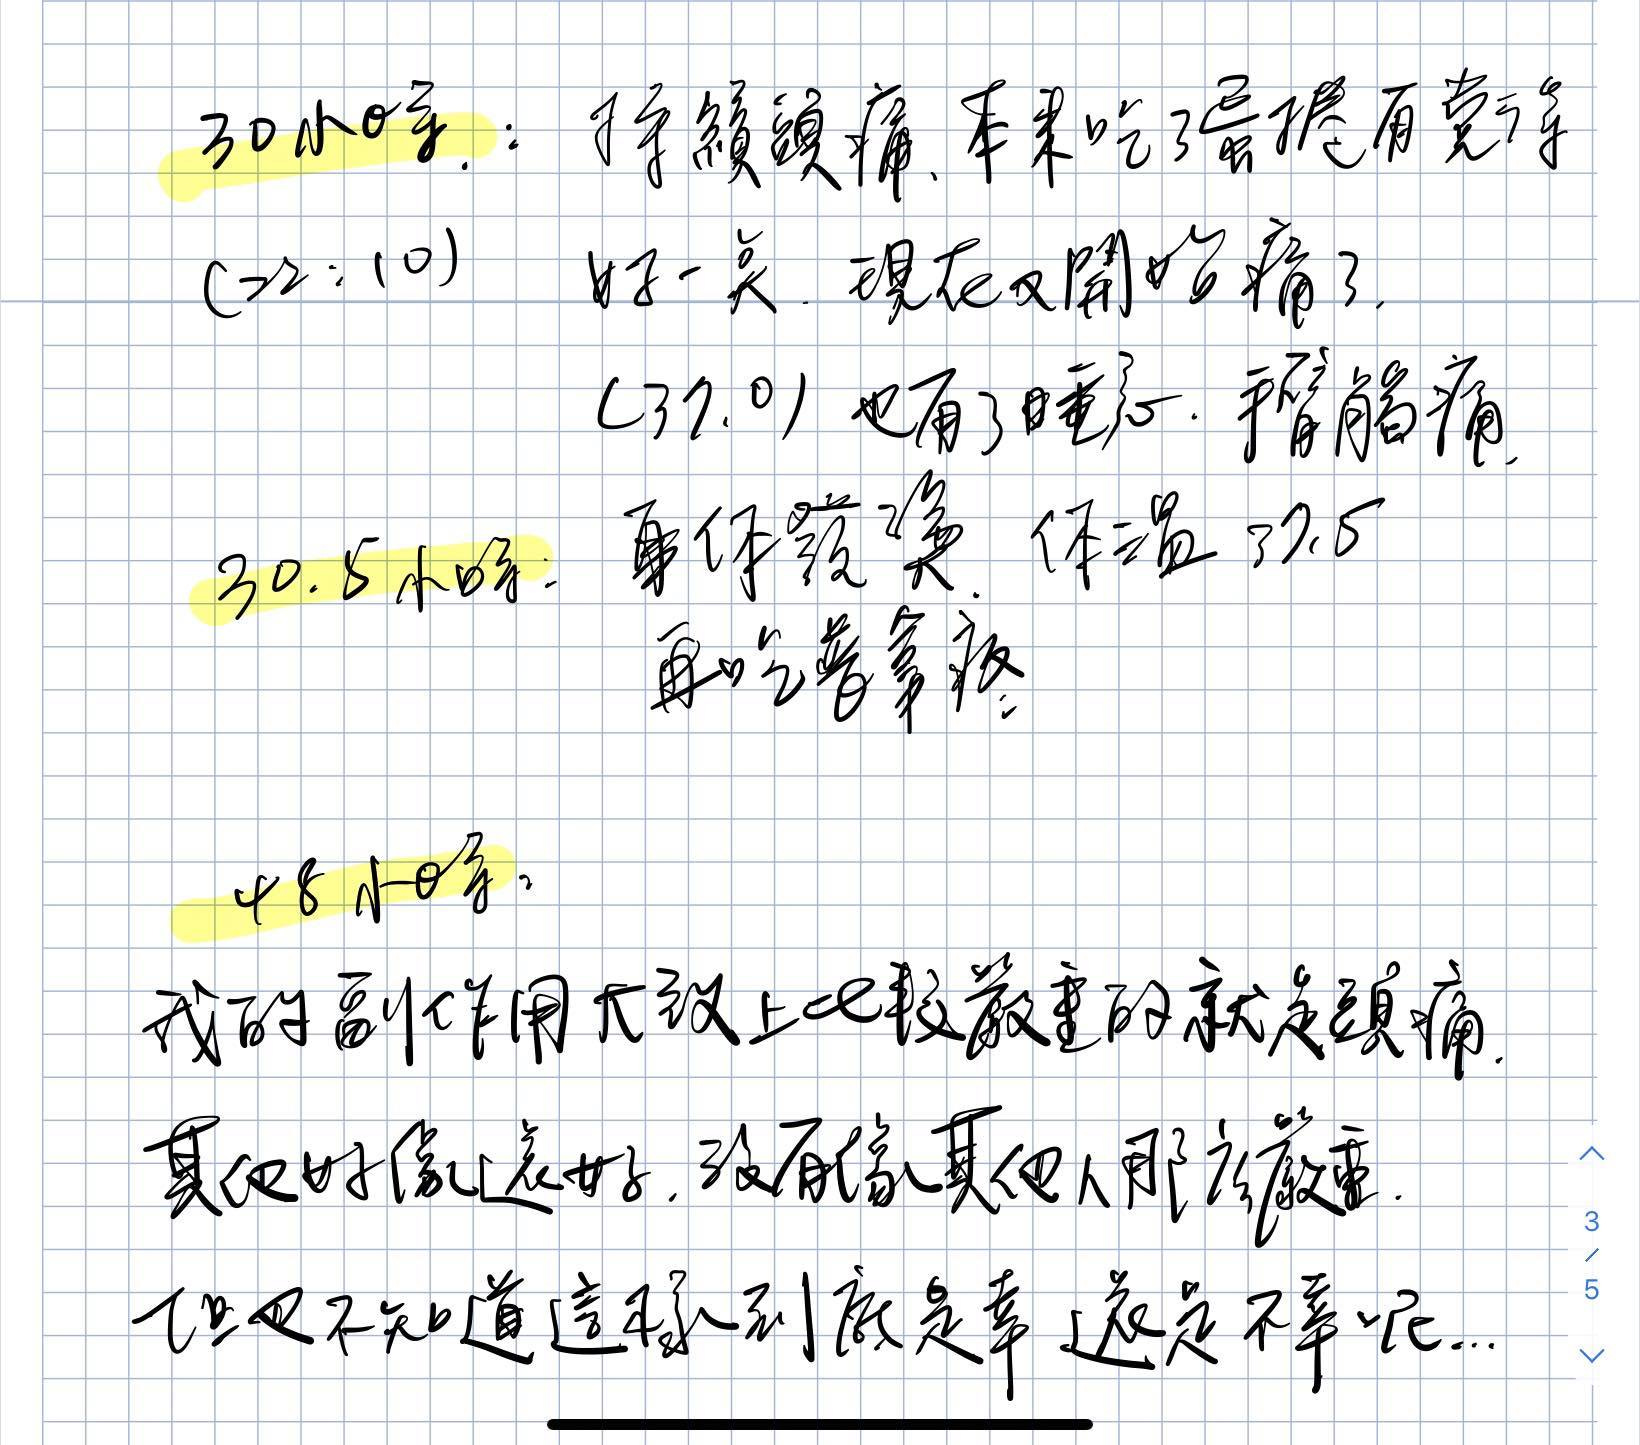 30小時: 持續頭痛、本來吃了蛋捲有覺得
(22:10) 好一點. 現在又開始痛了.
(37.0) 也有了睡意. 手臂有點痛.
30.5小時: 身体發燙. 体溫 37.5
再吃普拿疼
48小時:
我的副作用大致上比較嚴重的就是頭痛.
其他好像還好. 沒有像其他人那麼嚴重.
但也不知道這樣到底是幸還是不幸呢...
3
/
5